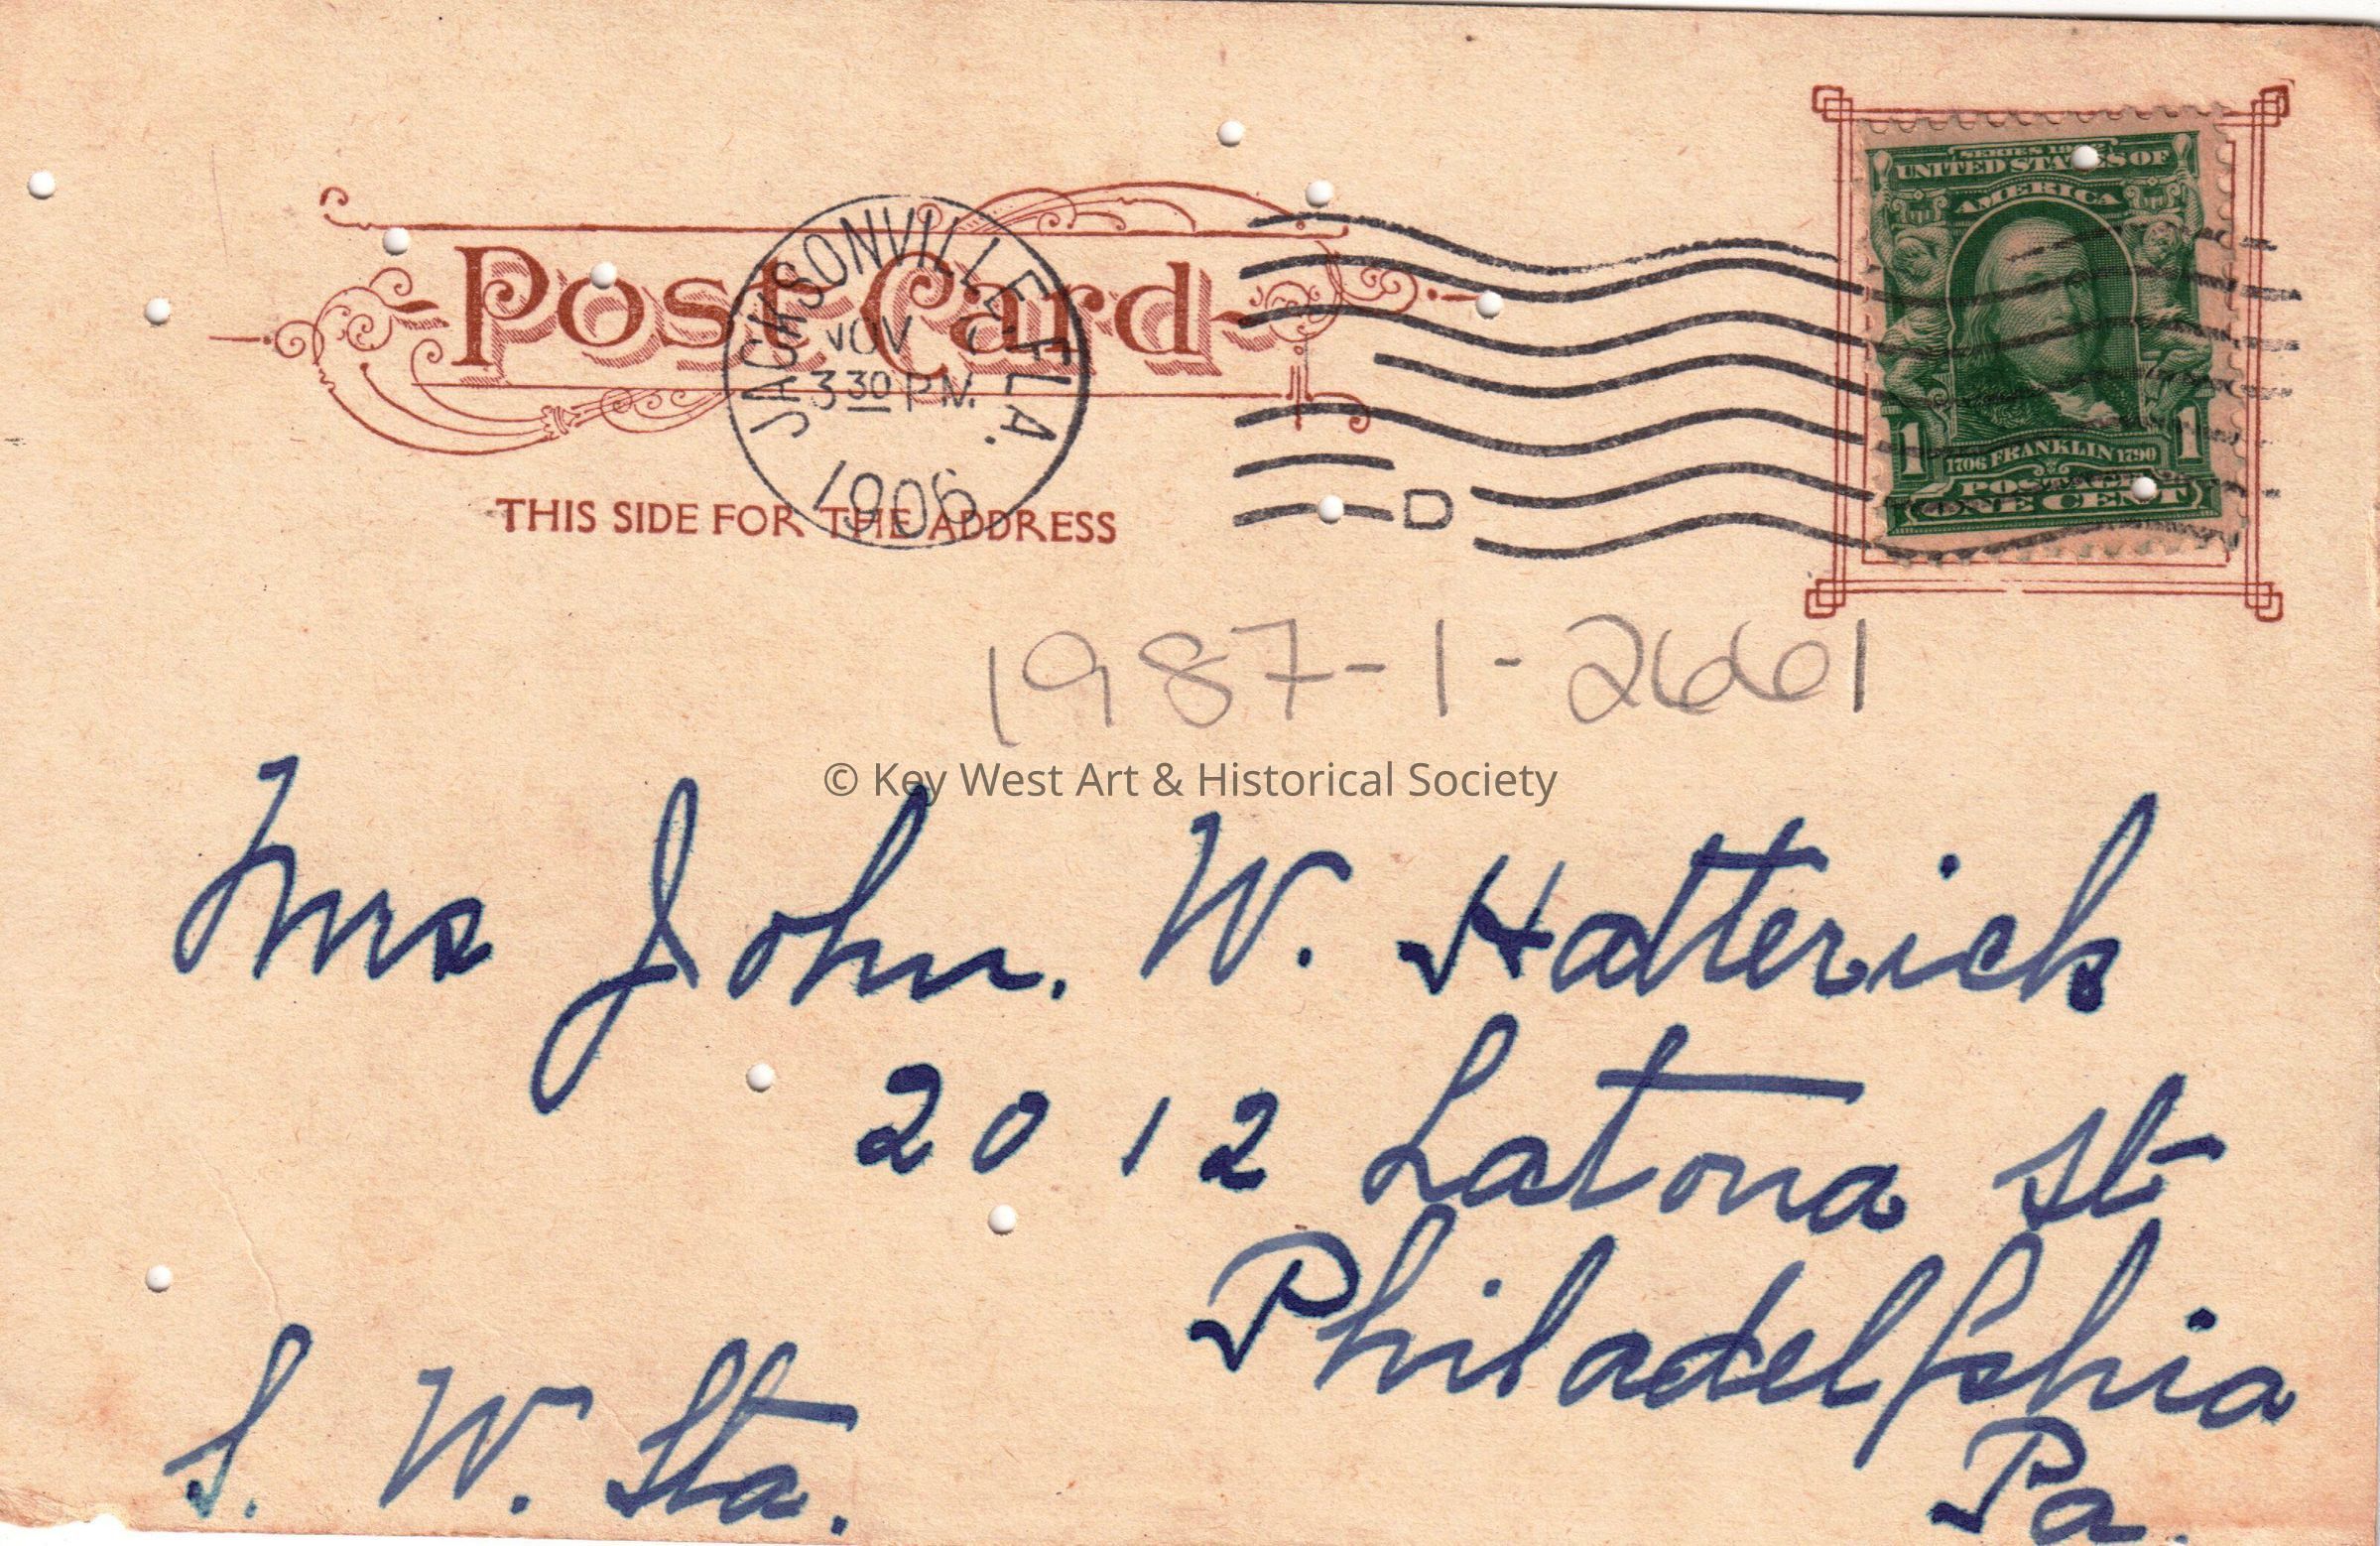 Post Card
THIS SIDE FOR THE ADDRESS
JACKSONVILLE, FLA.
NOV
3 30 PM
1906
D
SERIES 1902
UNITED STATES OF
AMERICA
1 1706 FRANKLIN 1790 1
POSTAGE
ONE CENT
1987-1-2661
© Key West Art & Historical Society
Mrs John. W. Hatterick
2012 Latona St
Philadelphia
Pa.
S. W. Sta.